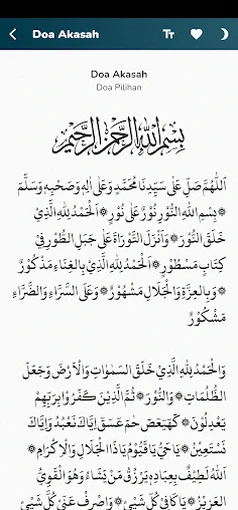 Doa Akasah
Doa Akasah
Doa Pilihan
بِسْمِ اللهِ الرَّحْمٰنِ الرَّحِيْمِ
اَللّٰهُمَّ صَلِّ عَلٰى سَيِّدِنَا مُحَمَّدٍ وَعَلٰى اٰلِهٖ وَصَحْبِهٖ وَسَلَّمَ
❁بِسْمِ اللهِ النُّوْرِ نُوْرٌ عَلٰى نُوْرٍ❁اَلْحَمْدُ لِلّٰهِ الَّذِيْ
خَلَقَ النُّوْرَ❁وَاَنْزَلَ التَّوْرَاةَ عَلٰى جَبَلِ الطُّوْرِ فِيْ
كِتَابٍ مَسْطُوْرٍ❁اَلْحَمْدُ لِلّٰهِ الَّذِيْ بِالْغِنَاءِ مَذْكُوْرٌ
❁وَبِالْعِزَّةِ وَالْجَلَالِ مَشْهُوْرٌ❁وَعَلَى السَّرَّاءِ وَالضَّرَّاءِ
مَشْكُوْرٌ
وَالْحَمْدُ لِلّٰهِ الَّذِيْ خَلَقَ السَّمٰوَاتِ وَالْاَرْضَ وَجَعَلَ
الظُّلُمَاتِ❁وَالنُّوْرَ❁ثُمَّ الَّذِيْنَ كَفَرُوْا بِرَبِّهِمْ
يَعْدِلُوْنَ❁كٓهٰيٰعٓصٓ حٰمٓ عٓسٓقٓ اِيَّاكَ نَعْبُدُ وَاِيَّاكَ
نَسْتَعِيْنُ❁يَا حَيُّ يَا قَيُّوْمُ يَا ذَا الْجَلَالِ وَالْاِكْرَامِ❁
اَللهُ لَطِيْفٌ بِعِبَادِهٖ يَرْزُقُ مَنْ يَشَاءُ وَهُوَ الْقَوِيُّ
الْعَزِيْزُ❁يَا كَافِيْ كُلَّ شَيْئٍ❁وَاصْرِفْ عَنِّيْ كُلَّ شَيْئٍ